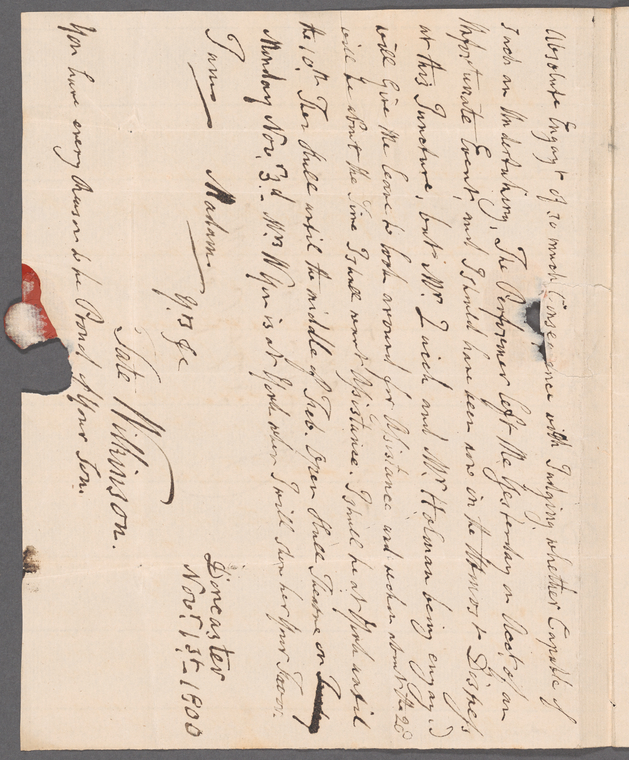 Absolute Engagt. of so much Consequence with Judging whether Capable of
such an Undertaking, The Performer left Me Yesterday on Acct. of an
Unfortunate Event, and I should have been now in the Utmost Distress
at this Juncture, but Mr. and Mr. Holman being engag'd
will Give Me leave to look around for Assistance and about the 20
will be about the Time I shall want Assistance. I shall be at York until
the 10th. Then Hull until the middle of Feb. Open Hull Theatre on
Monday Novr. 3d. Mrs. is at York when I will shew her Your Favor.
I am
Madam
Yrs. &c
Tate Wilkinson.
Doncaster
Novr. 1st. 1800
You have every Reason to be Proud of Your Son.